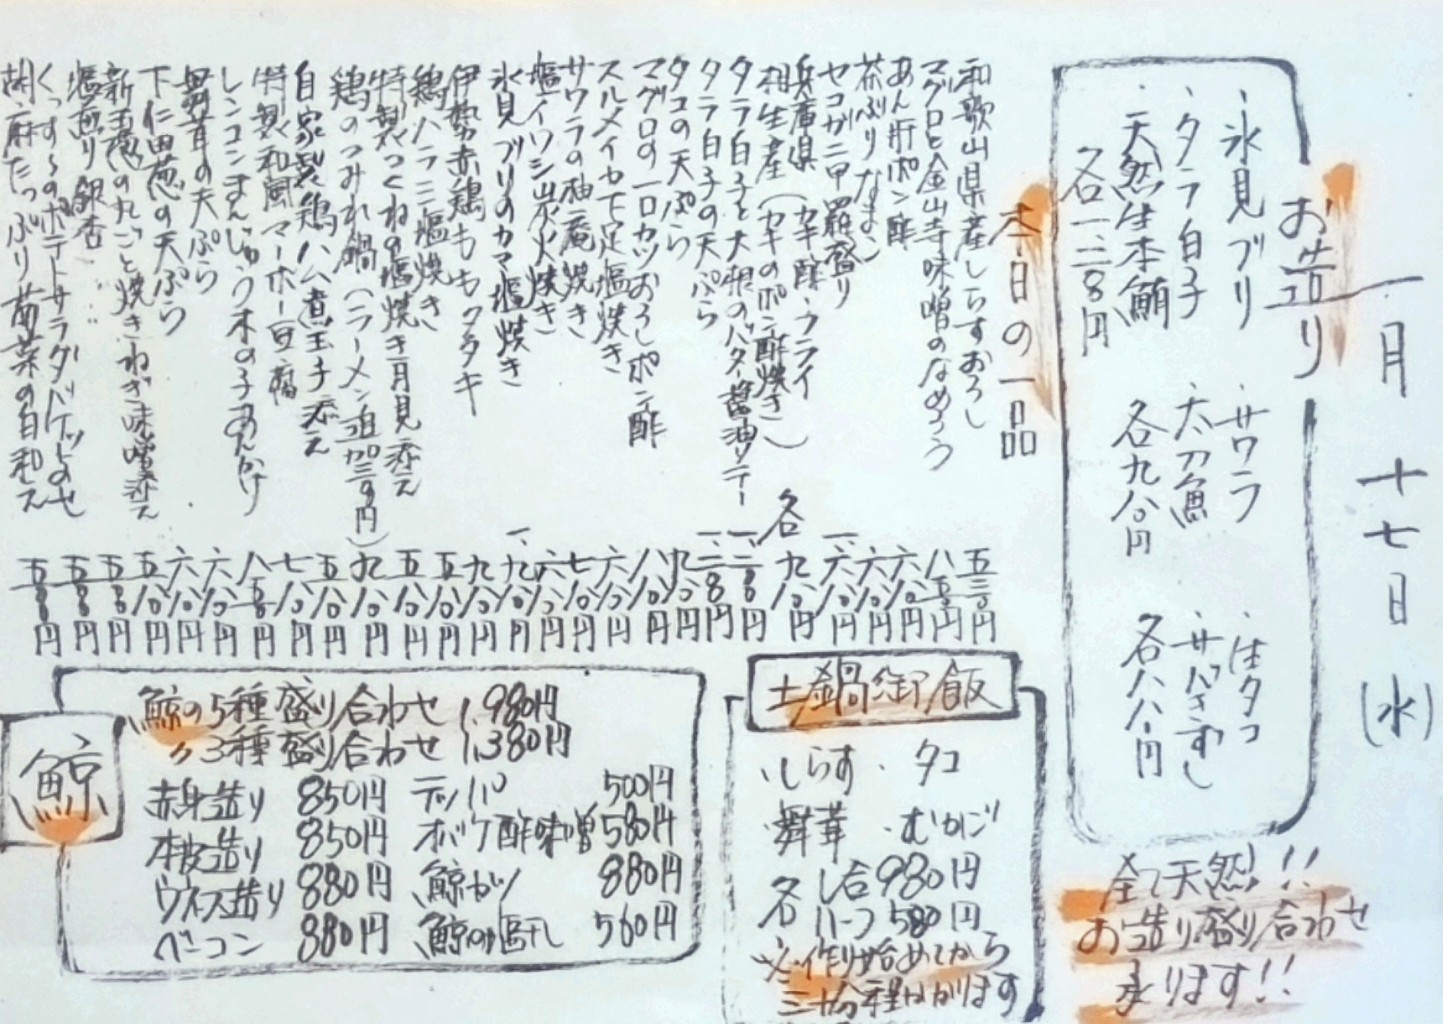 一月十七日(水)
お造り
・氷見ブリ
・タラ白子
・天然生本鮪
各一、二八〇円
・サワラ
・太刀魚
各九八〇円
・生タコ
・サバきずし
各八八〇円
全て天然!!
お造り盛り合わせ
承ります!!
本日の一品
和歌山県産しらすおろし 五三〇円
マグロと金山寺味噌のなめろう 八五〇円
あん肝ポン酢 六八〇円
茶ぶりなまこ 六八〇円
セコガニ甲羅盛り 一、六八〇円
兵庫県 (カキ酢・フライ
相生産 カキのポン酢焼き) 各九八〇円
タラ白子と大根のバター醤油ソテー
タラ白子の天ぷら
タコの天ぷら 九八〇円
マグロの一口カツおろしポン酢 八八〇円
スルメイカ下足塩焼き 六八〇円
サワラの柚庵焼き 七八〇円
塩イワシ炭火焼き 六八〇円
氷見ブリのカマ塩焼き 一、九八〇円
伊勢赤鶏ももタタキ 九八〇円
鶏ハラミ塩焼き 五八〇円
特製つくねの塩焼き月見添え 五八〇円
鶏のつみれ鍋(ラーメン追加三〇〇円) 九八〇円
自家製鶏ハム煮玉子添え 五八〇円
特製和風マーボー豆腐 七八〇円
レンコンまんじゅう木の子あんかけ 八五〇円
舞茸の天ぷら 六八〇円
下仁田葱の天ぷら 六八〇円
新玉葱の丸ごと焼きねぎ味噌添え 五八〇円
塩煎り銀杏
くっすんのポテトサラダバゲットのせ
胡麻たっぷり菊菜の白和え
土鍋御飯
・しらす ・タコ
・舞茸 ・むかご
各 一合980円
ハーフ580円
※作り始めてから
三十分程かかります
鯨
鯨の5種盛り合わせ 1,980円
〃3種盛り合わせ 1,380円
赤身造り 850円
本皮造り 850円
ウネス造り 880円
ベーコン 880円
テッパ 500円
オバケ酢味噌 580円
鯨カツ 880円
鯨の塩干し 560円